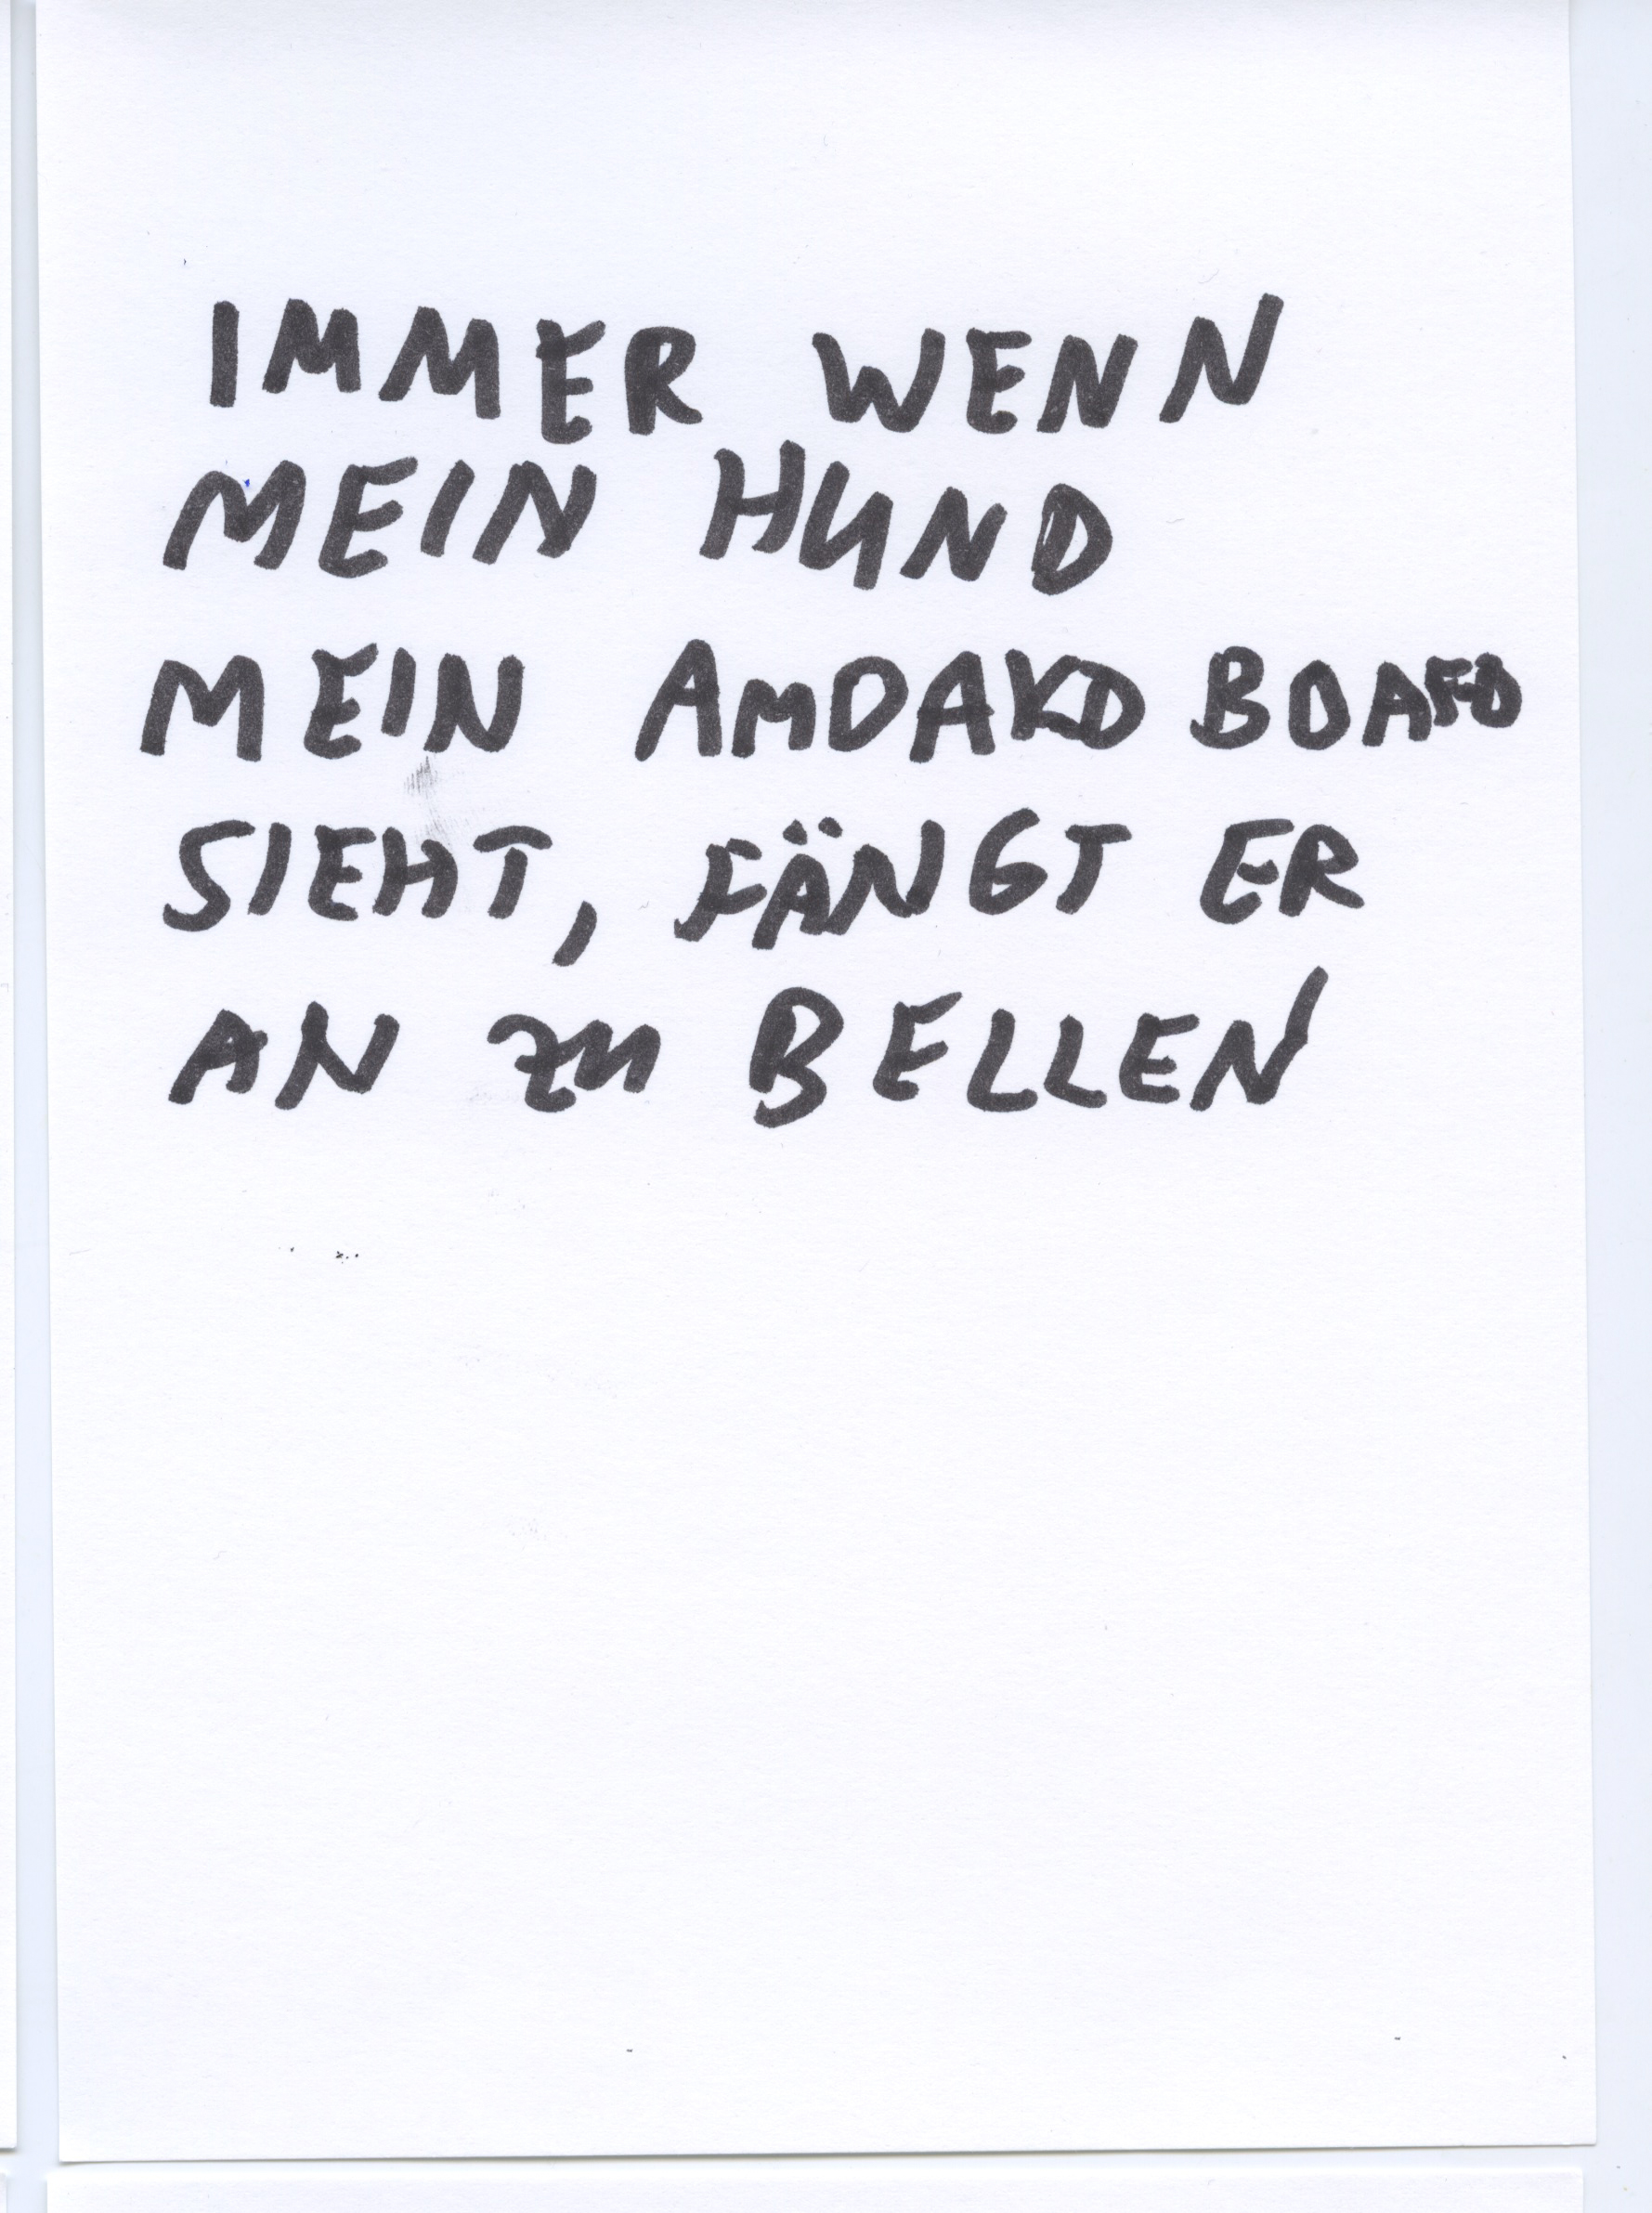 IMMER WENN
MEIN HUND
MEIN AMOAKO BOAFO
SIEHT, FÄNGT ER
AN ZU BELLEN